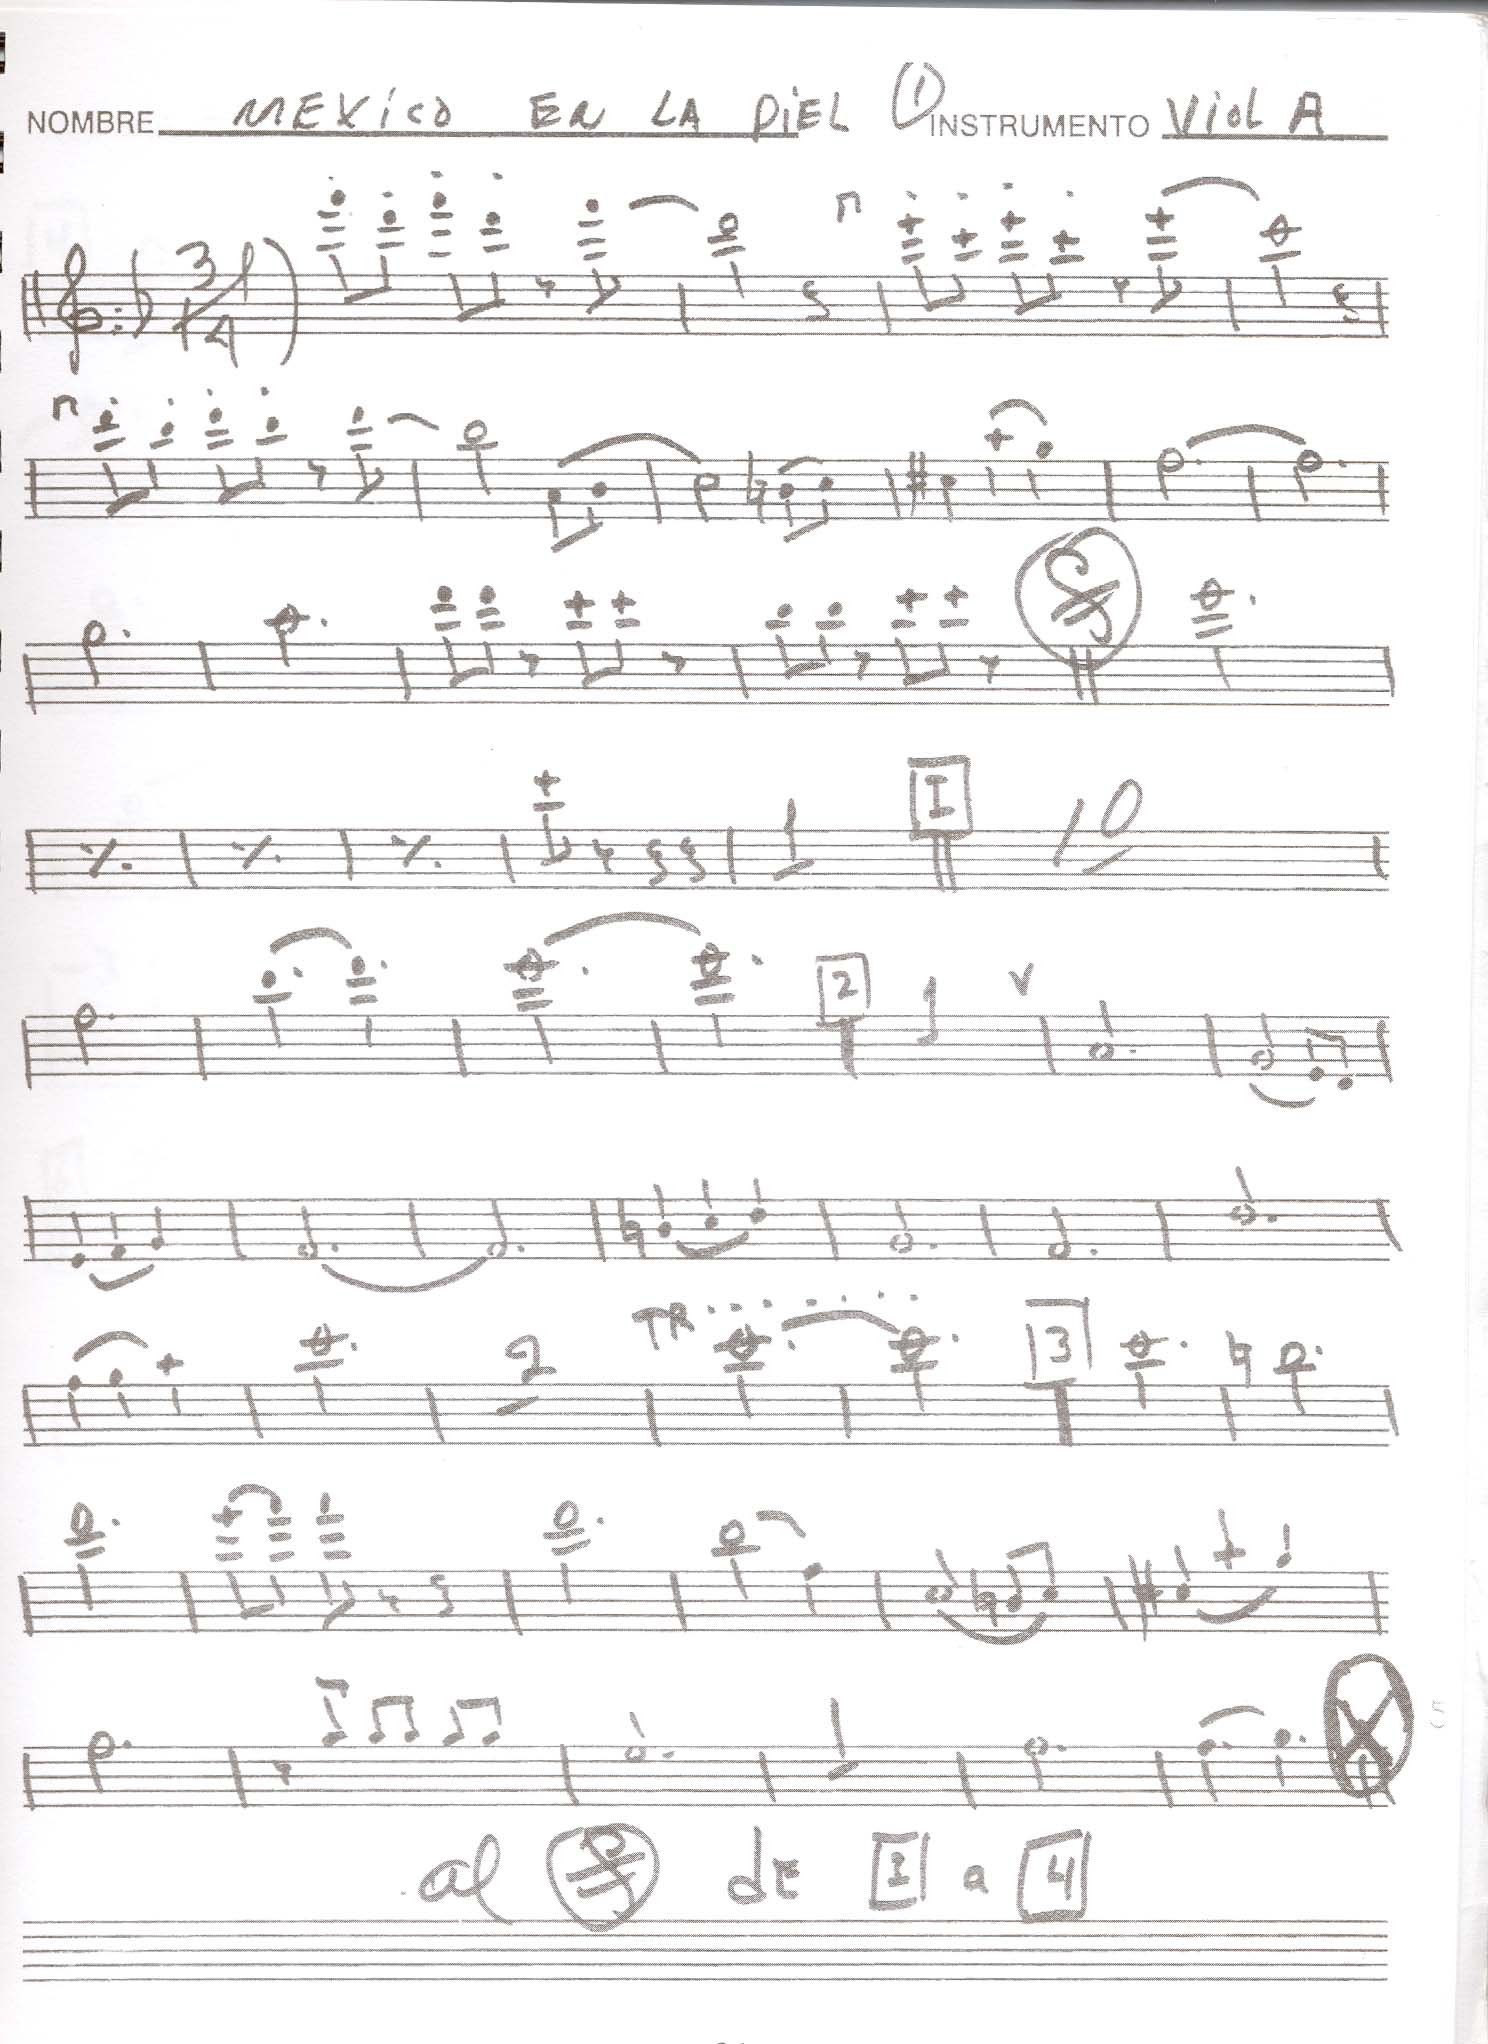 NOMBRE MEXICO EN LA PIEL ① INSTRUMENTO VIOLA
3/4
I
10
2
TR.......
2
3
al de 3 a 4